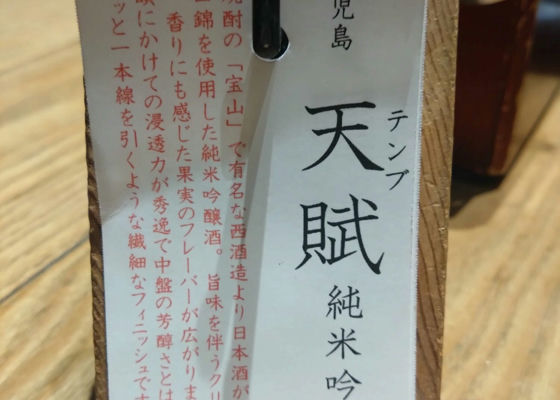 児島
テンブ
天賦
純米吟
焼酎の「宝山」で有名な西酒造より日本酒が
錦を使用した純米吟醸酒。旨味を伴うクリ
香りにも感じた果実のフレーバーが広がりま
にかけての浸透力が秀逸で中盤の芳醇さとは
ッと一本線を引くような繊細なフィニッシュです